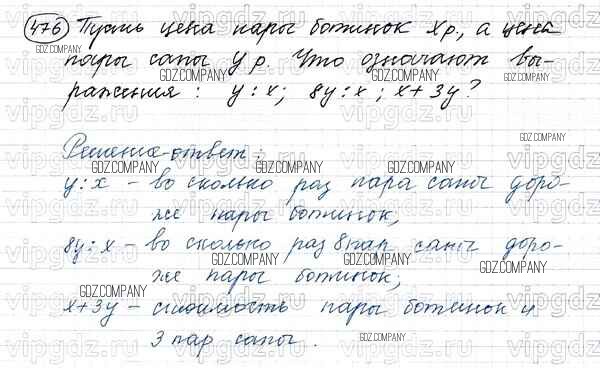 476 Пусть цена пары ботинок x р., а цена
пары сапог y р. Что означают вы-
ражения: y:x; 8y:x; x+3y?
Решение-ответ:
y:x - во сколько раз пара сапог доро-
же пары ботинок;
8y:x - во сколько раз 8 пар сапог доро-
же пары ботинок;
x+3y - стоимость пары ботинок и
3 пар сапог.